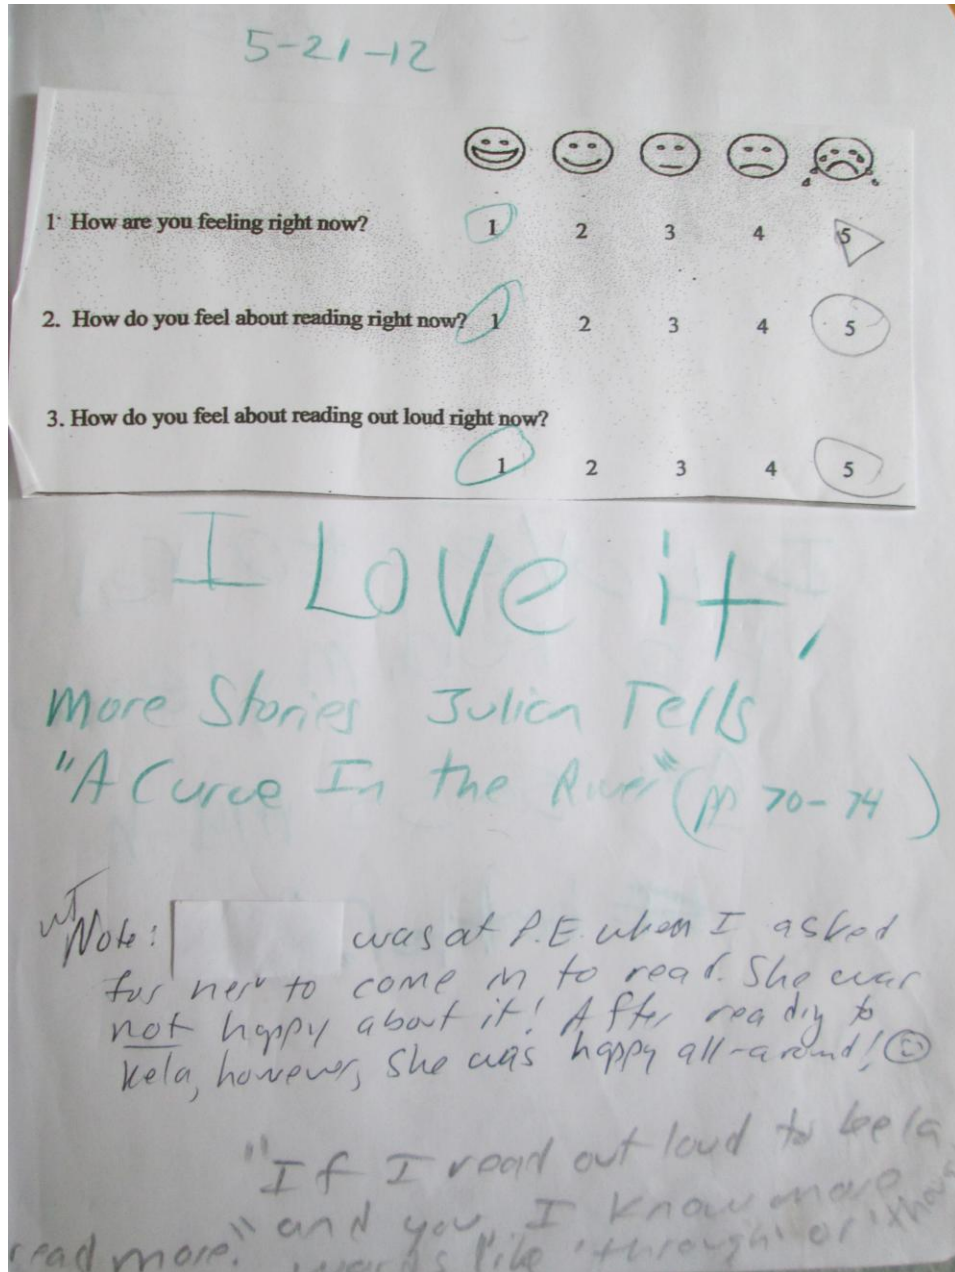 5-21-12
1. How are you feeling right now? 1 2 3 4 5
2. How do you feel about reading right now? 1 2 3 4 5
3. How do you feel about reading out loud right now?
1 2 3 4 5
I Love it,
More Stories Julian Tells
"A Curve In the River" (pp 70-74)
Note: was at P.E. when I asked
for her to come in to read. She was
not happy about it! After reading to
Kela, however, she was happy all-around!
"If I read out loud to kela
and you, I know more
words like 'through' or
read more."